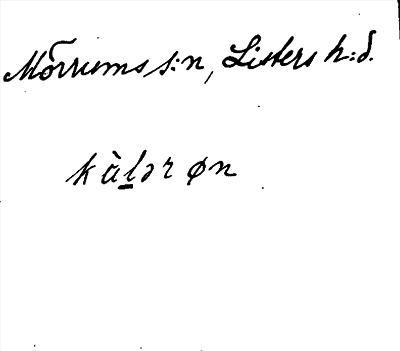 Mörrums s:n, Listers h:d.
kàl̲ər øn